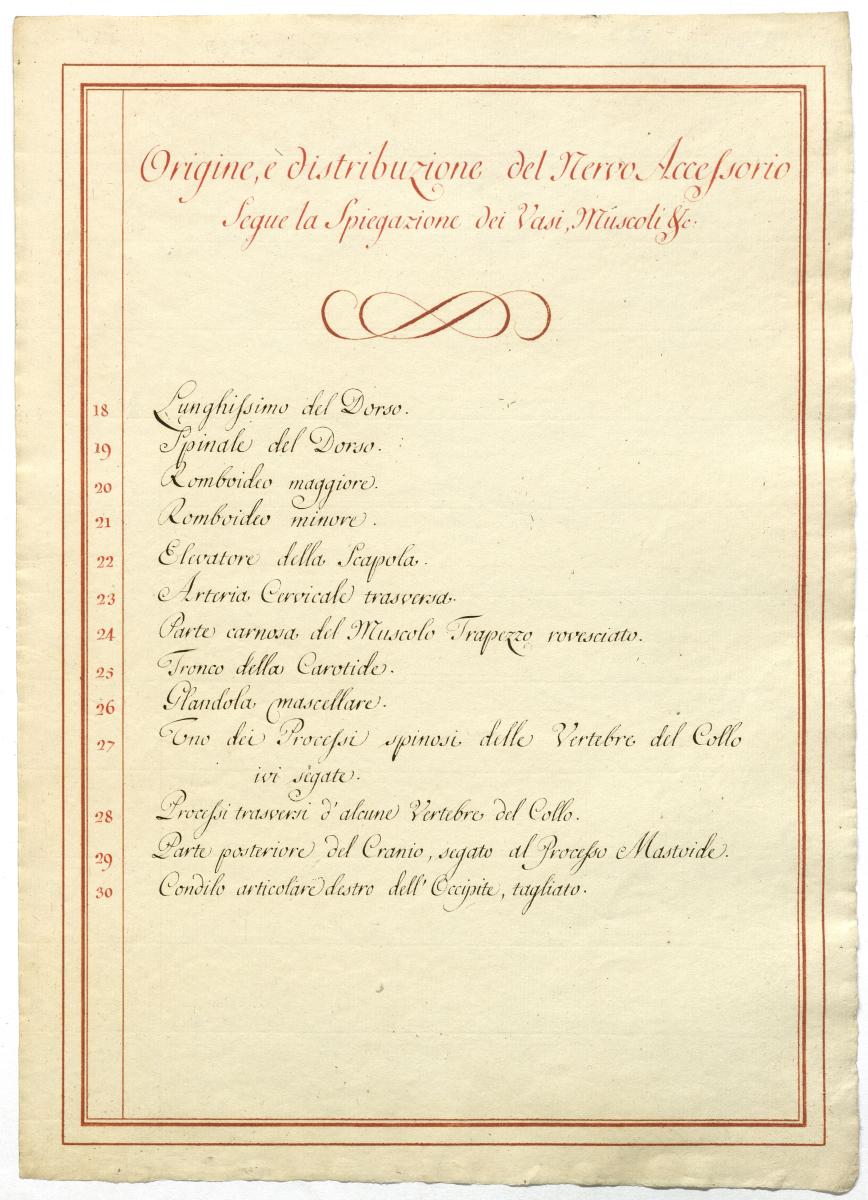 Origine, è distribuzione del Nervo Accessorio
Segue la Spiegazione dei Vasi, Muscoli &c.
18 Lunghissimo del Dorso.
19 Spinale del Dorso.
20 Romboideo maggiore.
21 Romboideo minore.
22 Elevatore della Scapola.
23 Arteria Cervicale trasversa.
24 Parte carnosa del Muscolo Trapezzo rovesciato.
25 Tronco della Carotide.
26 Glandola mascellare.
27 Uno dei Processi spinosi delle Vertebre del Collo
ivi segate.
28 Processi trasversi d'alcune Vertebre del Collo.
29 Parte posteriore del Cranio, segato al Processo Mastoide.
30 Condilo articolare destro dell'Occipite, tagliato.